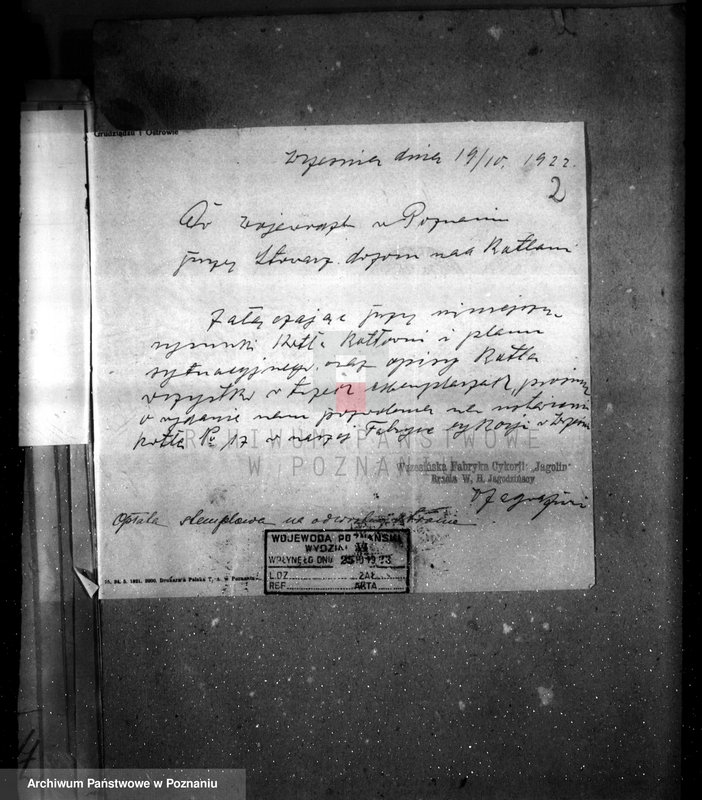 Grudziądzu i Ostrowie
Września dnia 19/10. 1922
2
Do Wojewody w Poznaniu
przez Stowarz. dozoru nad Kotłami
Załączając przy niniejszym
rysunki Kotła Kotłowni i planu
sytuacyjnego, oraz opisy Kotła
wszystko w trzech egzemplarzach, prosimy
o wydanie nam pozwolenia na ustawienie
Kotła No 17 w naszej Fabryce Cykorji w Wrześni
Wrzesińska Fabryka Cykorji „Jagolin"
Bracia W. H. Jagodzińscy
Opłata stemplowa na odwrotnej stronie
WOJEWODA POZNAŃSKI
WYDZIAŁ
WPŁYNĘŁO DNIA 25
L.DZ. ZAŁ.
REF. AKTA
24. 5. 1921. 2000. Drukarnia Polska T. A. w Poznaniu
ARCHIWUM PAŃSTWOWE
W POZNANIU
Archiwum Państwowe w Poznaniu